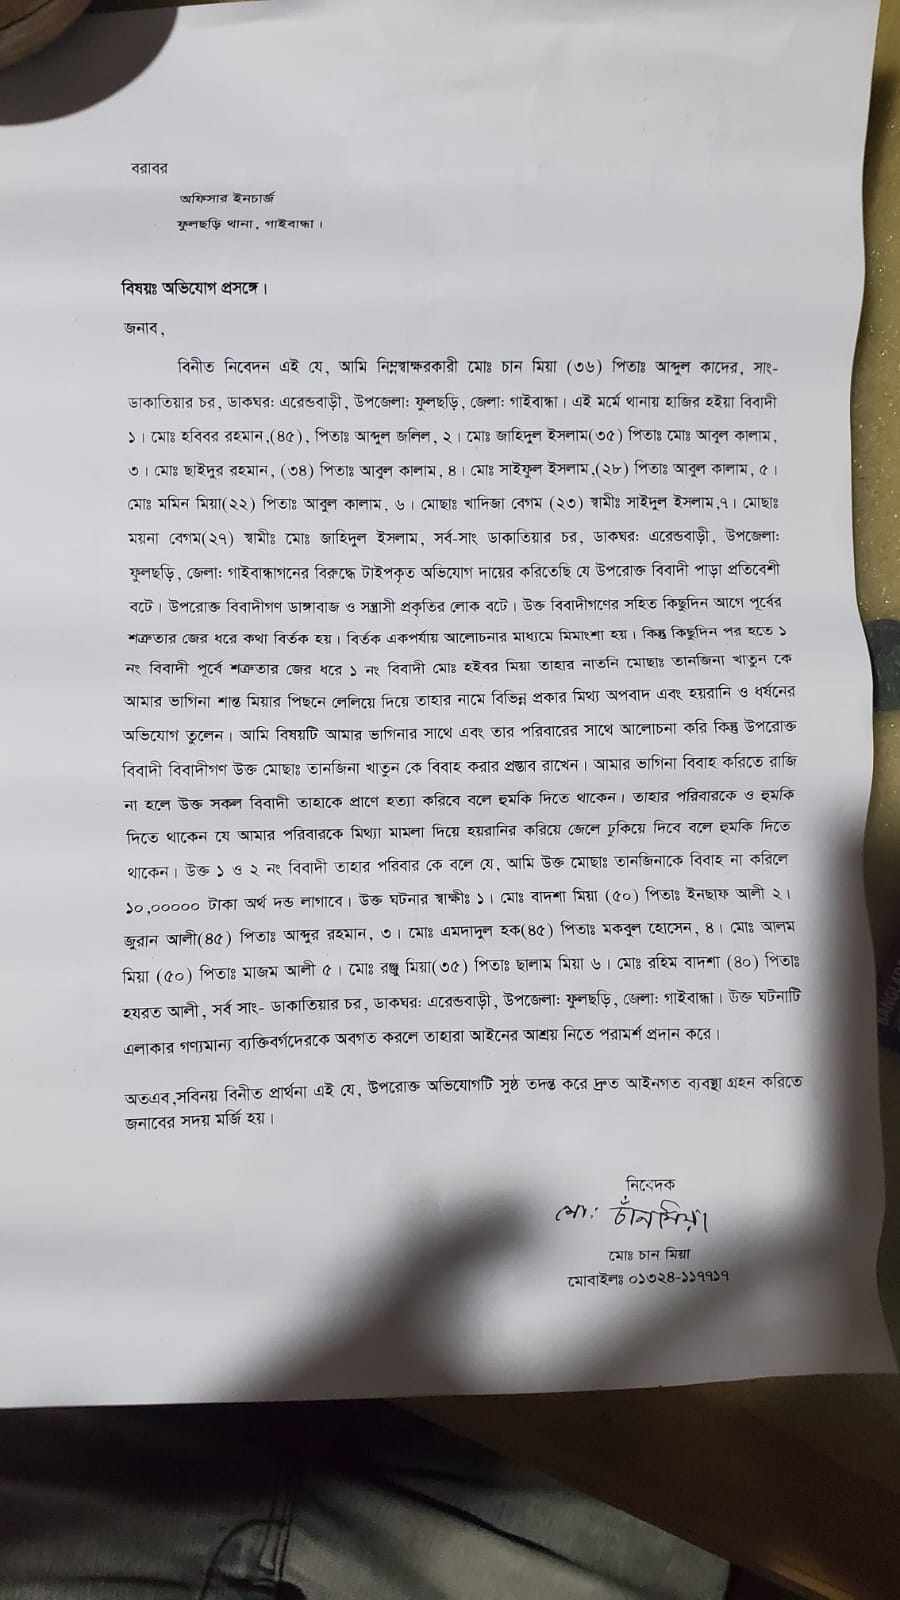 বরাবর
অফিসার ইনচার্জ
ফুলছড়ি থানা, গাইবান্ধা।
বিষয়ঃ অভিযোগ প্রসঙ্গে।
জনাব,
বিনীত নিবেদন এই যে, আমি নিম্নস্বাক্ষরকারী মোঃ চান মিয়া (৩৬) পিতাঃ আব্দুল কাদের, সাং-
ডাকাতিয়ার চর, ডাকঘর: এরেন্ডবাড়ী, উপজেলা: ফুলছড়ি, জেলা: গাইবান্ধা। এই মর্মে থানায় হাজির হইয়া বিবাদী
১। মোঃ হবিবর রহমান,(৪৫), পিতাঃ আব্দুল জলিল, ২। মোঃ জাহিদুল ইসলাম(৩৫) পিতাঃ মোঃ আবুল কালাম,
৩। মোঃ ছাইদুর রহমান, (৩৪) পিতাঃ আবুল কালাম, ৪। মোঃ সাইফুল ইসলাম,(২৮) পিতাঃ আবুল কালাম, ৫।
মোঃ মমিন মিয়া(২২) পিতাঃ আবুল কালাম, ৬। মোছাঃ খাদিজা বেগম (২৩) স্বামীঃ সাইদুল ইসলাম,৭। মোছাঃ
ময়না বেগম(২৭) স্বামীঃ মোঃ জাহিদুল ইসলাম, সর্ব-সাং ডাকাতিয়ার চর, ডাকঘর: এরেন্ডবাড়ী, উপজেলা:
ফুলছড়ি, জেলা: গাইবান্ধাগনের বিরুদ্ধে টাইপকৃত অভিযোগ দায়ের করিতেছি যে উপরোক্ত বিবাদী পাড়া প্রতিবেশী
বটে। উপরোক্ত বিবাদীগণ ডাঙ্গাবাজ ও সন্ত্রাসী প্রকৃতির লোক বটে। উক্ত বিবাদীগণের সহিত কিছুদিন আগে পূর্বের
শত্রুতার জের ধরে কথা বির্তক হয়। বির্তক একপর্যায় আলোচনার মাধ্যমে মিমাংশা হয়। কিন্তু কিছুদিন পর হতে ১
নং বিবাদী পূর্বে শত্রুতার জের ধরে ১ নং বিবাদী মোঃ হইবর মিয়া তাহার নাতনি মোছাঃ তানজিনা খাতুন কে
আমার ভাগিনা শান্ত মিয়ার পিছনে লেলিয়ে দিয়ে তাহার নামে বিভিন্ন প্রকার মিথ্য অপবাদ এবং হয়রানি ও ধর্ষনের
অভিযোগ তুলেন। আমি বিষয়টি আমার ভাগিনার সাথে এবং তার পরিবারের সাথে আলোচনা করি কিন্তু উপরোক্ত
বিবাদী বিবাদীগণ উক্ত মোছাঃ তানজিনা খাতুন কে বিবাহ করার প্রস্তাব রাখেন। আমার ভাগিনা বিবাহ করিতে রাজি
না হলে উক্ত সকল বিবাদী তাহাকে প্রাণে হত্যা করিবে বলে হুমকি দিতে থাকেন। তাহার পরিবারকে ও হুমকি
দিতে থাকেন যে আমার পরিবারকে মিথ্যা মামলা দিয়ে হয়রানির করিয়ে জেলে ঢুকিয়ে দিবে বলে হুমকি দিতে
থাকেন। উক্ত ১ ও ২ নং বিবাদী তাহার পরিবার কে বলে যে, আমি উক্ত মোছাঃ তানজিনাকে বিবাহ না করিলে
১০,০০০০০ টাকা অর্থ দন্ড লাগাবে। উক্ত ঘটনার স্বাক্ষীঃ ১। মোঃ বাদশা মিয়া (৫০) পিতাঃ ইনছাফ আলী ২।
জুরান আলী(৪৫) পিতাঃ আব্দুর রহমান, ৩। মোঃ এমদাদুল হক(৪৫) পিতাঃ মকবুল হোসেন, ৪। মোঃ আলম
মিয়া (৫০) পিতাঃ মাজম আলী ৫। মোঃ রঞ্জু মিয়া(৩৫) পিতাঃ ছালাম মিয়া ৬। মোঃ রহিম বাদশা (৪০) পিতাঃ
হযরত আলী, সর্ব সাং- ডাকাতিয়ার চর, ডাকঘর: এরেন্ডবাড়ী, উপজেলা: ফুলছড়ি, জেলা: গাইবান্ধা। উক্ত ঘটনাটি
এলাকার গণ্যমান্য ব্যক্তিবর্গদেরকে অবগত করলে তাহারা আইনের আশ্রয় নিতে পরামর্শ প্রদান করে।
অতএব,সবিনয় বিনীত প্রার্থনা এই যে, উপরোক্ত অভিযোগটি সুষ্ঠ তদন্ত করে দ্রুত আইনগত ব্যবস্থা গ্রহন করিতে
জনাবের সদয় মর্জি হয়।
নিবেদক
মো: চাঁন মিয়া
মোঃ চান মিয়া
মোবাইলঃ ০১৩২৪-১১৭৭১৭